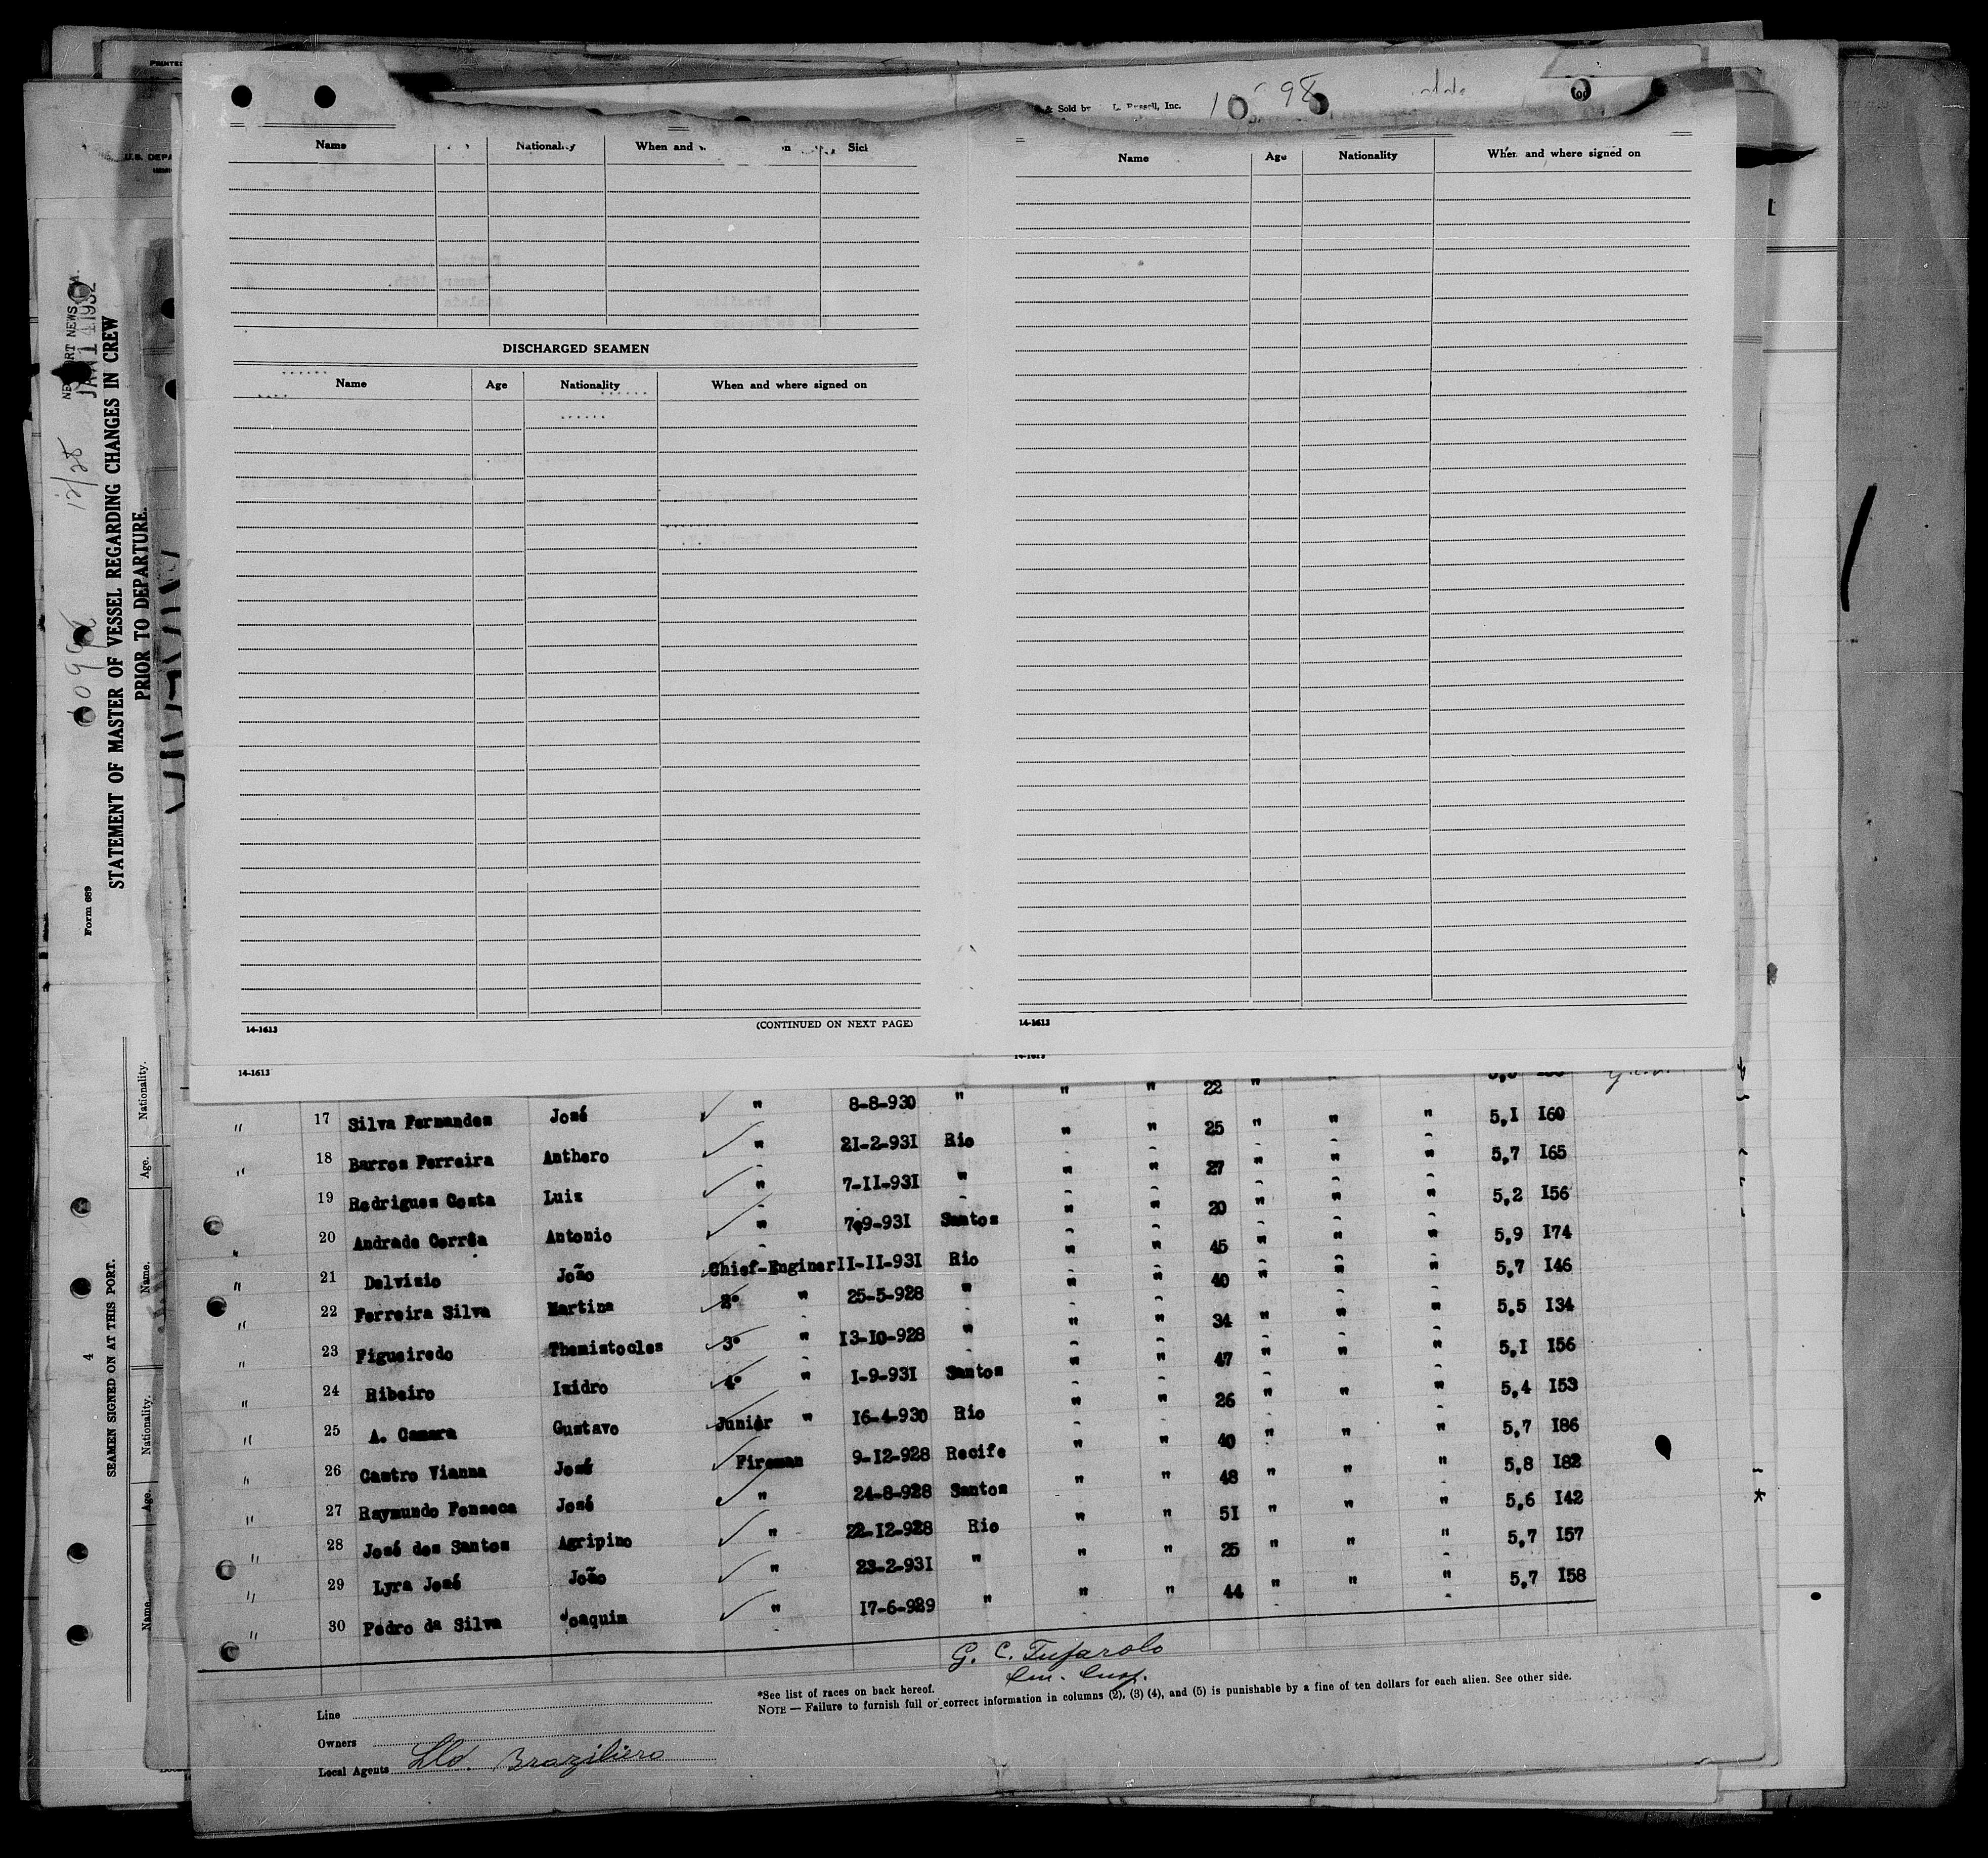 PRINTED
& Sold by L. Russell, Inc.
Name Nationality When and Sick
Name Age Nationality When and where signed on
DISCHARGED SEAMEN
Name Age Nationality When and where signed on
14-1613 (CONTINUED ON NEXT PAGE) 14-1613
14-1613 14-1613
" " 22 "
" 17 Silva Fernandes José " 8-8-930 " " " 25 " " " 5,1 160
" 18 Barros Ferreira Anthero " 21-2-931 Rio " " 27 " " " 5,7 165
19 Rodrigues Costa Luiz " 7-11-931 " " " 20 " " " 5,2 156
" 20 Andrade Corrêa Antonio " 7-9-931 Santos " " 45 " " " 5,9 174
" 21 Delvizio João Chief-Enginer 11-11-931 Rio " " 40 " " " 5,7 146
" 22 Ferreira Silva Martins 2° " 25-5-928 " " " 34 " " " 5,5 134
" 23 Figueiredo Themistocles 3° " 13-10-928 " " " 47 " " " 5,1 156
" 24 Ribeiro Izidro 4° " 1-9-931 Santos " " 26 " " " 5,4 153
" 25 A. Camara Gustavo Junior " 16-4-930 Rio " " 40 " " " 5,7 186
" 26 Castro Vianna José Fireman 9-12-928 Recife " " 48 " " " 5,8 182
" 27 Raymundo Fonseca José " 24-8-928 Santos " " 51 " " " 5,6 142
" 28 José dos Santos Agripino " 22-12-928 Rio " " 25 " " " 5,7 157
" 29 Lyra José João " 23-2-931 " " " 44 " " " 5,7 158
" 30 Pedro da Silva Joaquim " 17-6-929 "
G. C. Tufarolo
Imm. Insp.
*See list of races on back hereof.
NOTE — Failure to furnish full or correct information in columns (2), (3) (4), and (5) is punishable by a fine of ten dollars for each alien. See other side.
Line
Owners
Local Agents Lld. Braziliero
U.S. DEPA
NEWPORT NEWS, VA.
JAN 14 1932
12/28
Form 689
STATEMENT OF MASTER OF VESSEL REGARDING CHANGES IN CREW
PRIOR TO DEPARTURE.
4
SEAMEN SIGNED ON AT THIS PORT.
Name. Age. Nationality. Name. Age. Nationality.